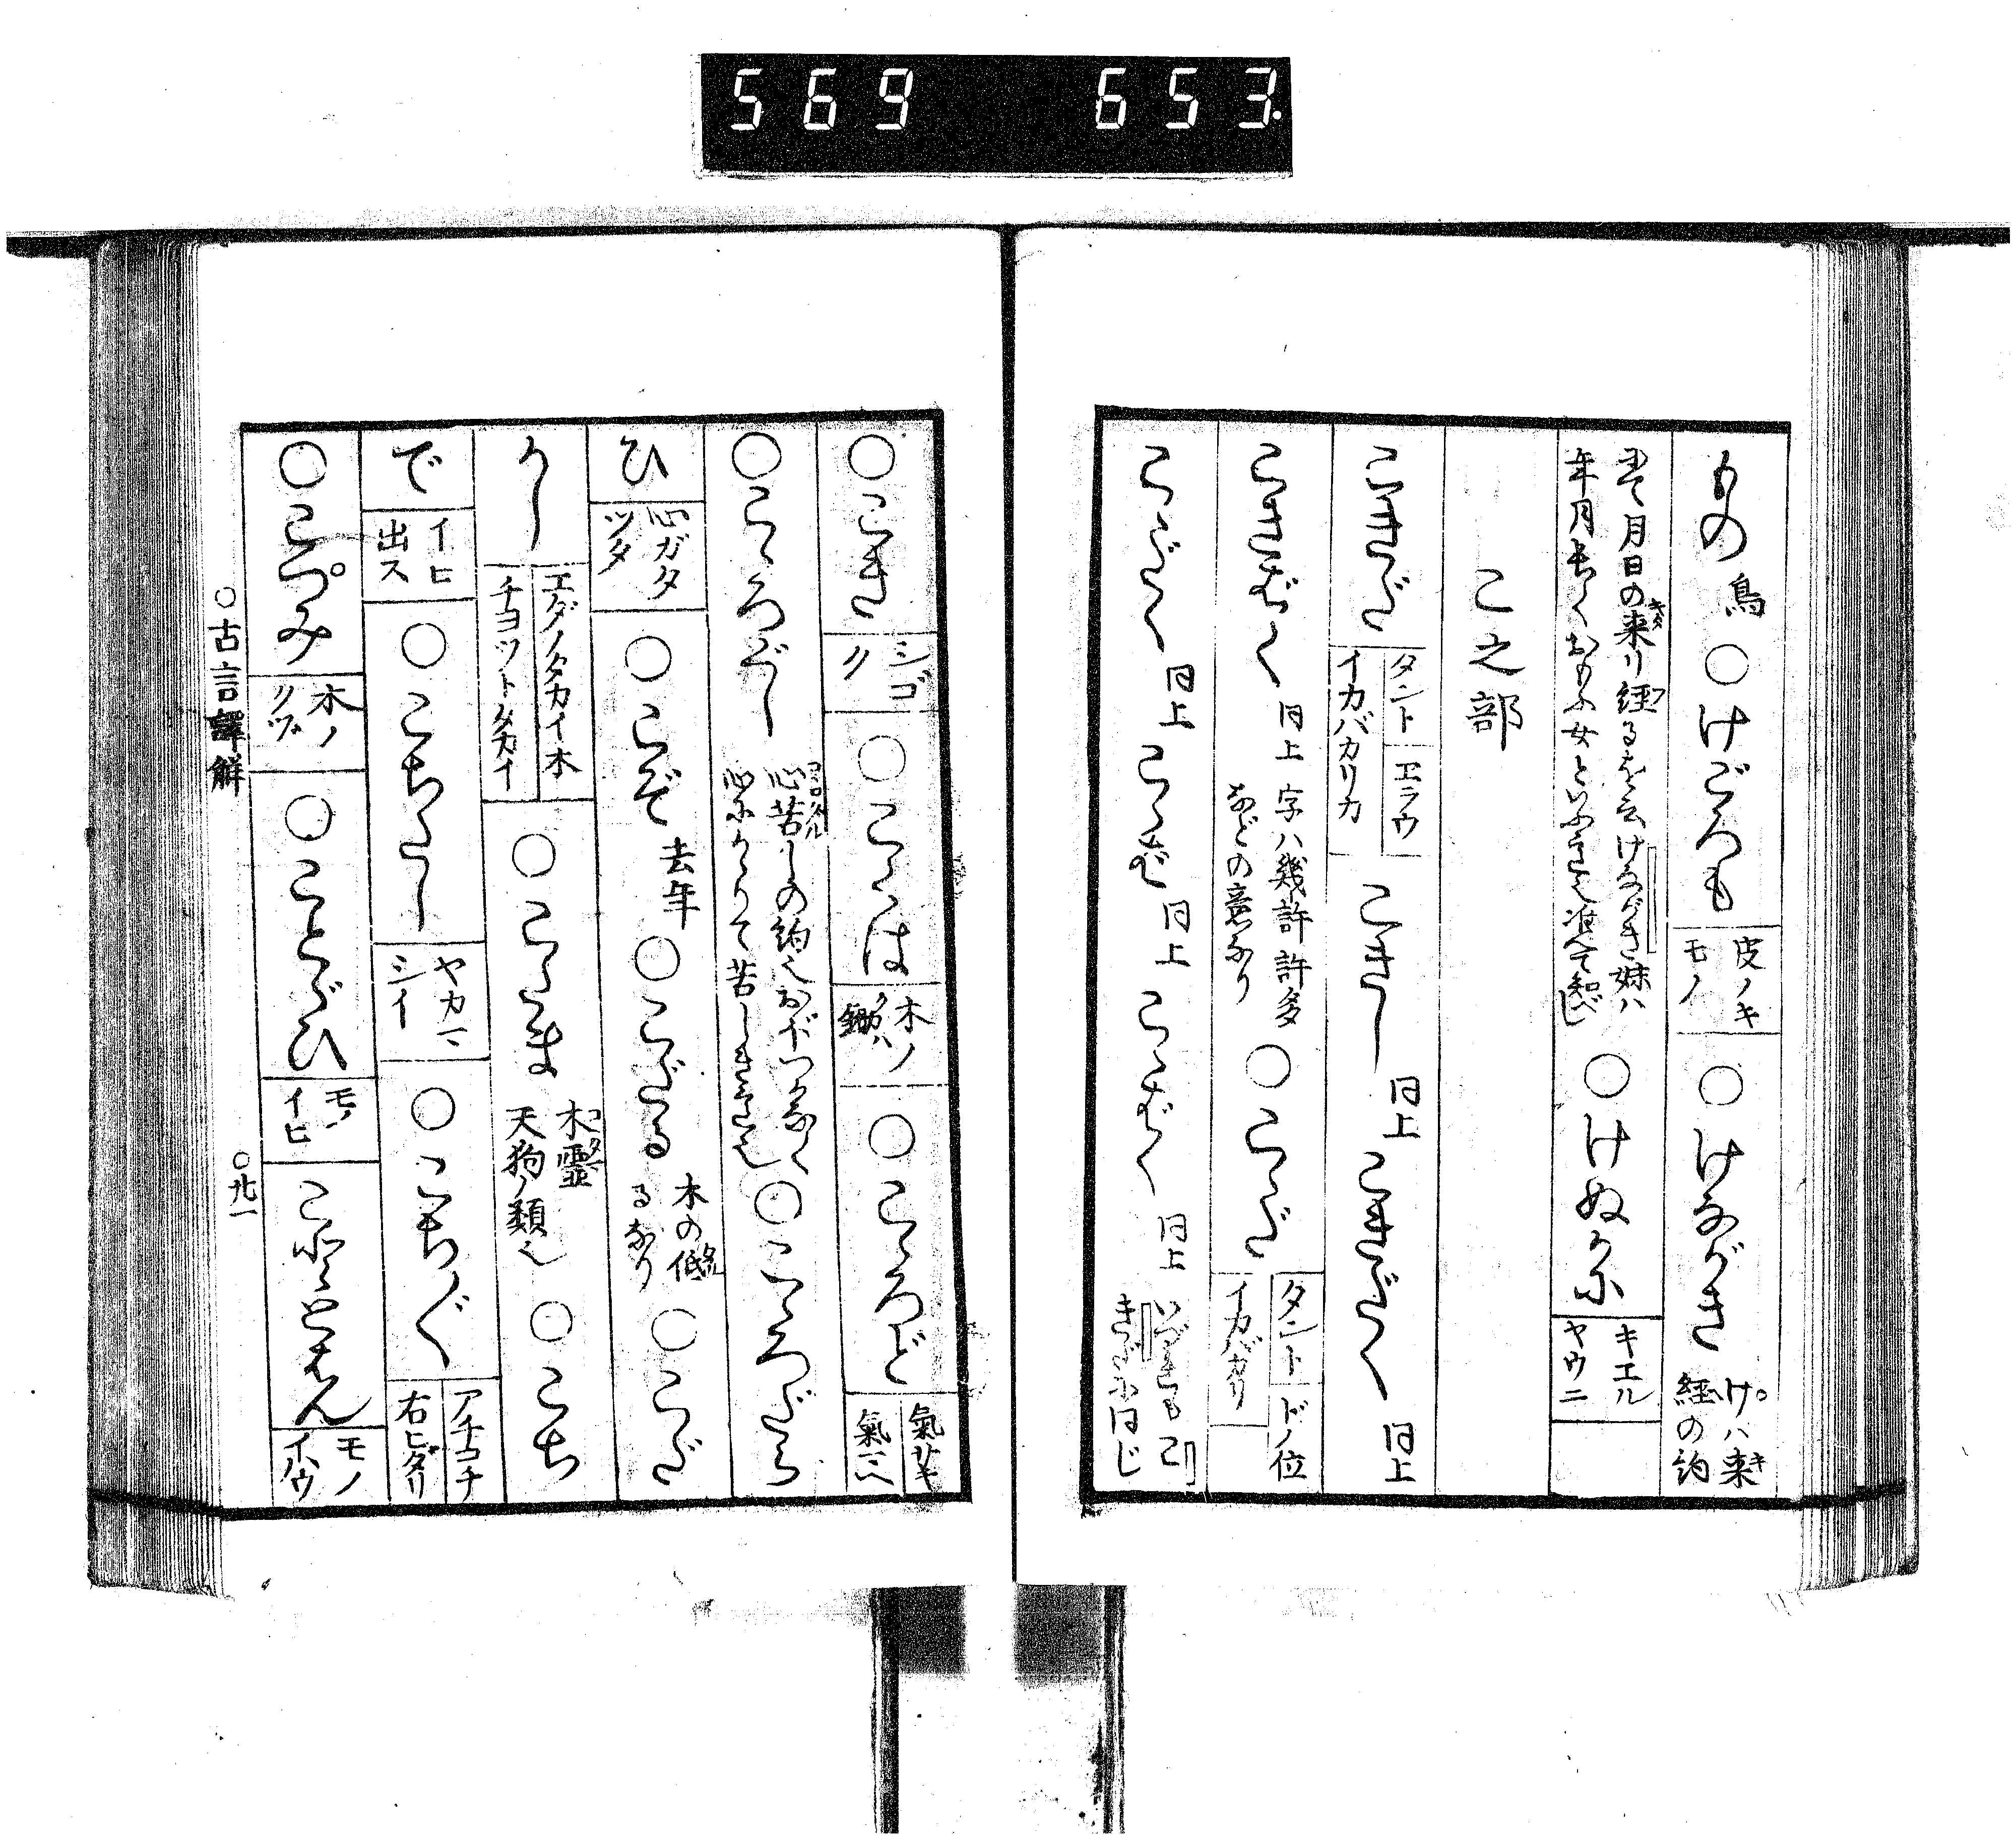 569 653
もの 鳥 ○けごろも 皮ノキモノ ○けながき け。ハ来経の約
にて月日の来リ経るを云けながき妹ハ
年月長くおもふ女といふことと准へて知べし ○けぬかに キエルヤウニ
こ之部
こきだ タント エラウ イカバカリカ こきし 同上 こきだく 同上
こきばく 同上 字ハ幾許許多などの意なり ○こゝだ タント ドノ位 イカバカリ
こゝだく 同上 こゝば 同上 こゝばく 同上 いづれも こ きだに同じ
○こき シゴク ○こゝは 木ノ鋤 ○こゝろど 氣サキ 氣
○こゝろぐし 心苦しの約
心にかゝりて苦しき ○こゝろだら
ひ 心ガタツタ ○こぞ 去年 ○こだる 木の低るなり ○こだ
かし エダノタカイ木 チヨツトタカイ ○こだま 木霊 天狗ノ類也 ○こち
で イヒ出ス ○こちたし ヤカマシイ ○こちぐ アチコチ 右ヒダリ
○こつみ 木ノクヅ ○ことゞひ モノイヒ ことゝはん モノイハウ
○古言譯解 ○九一